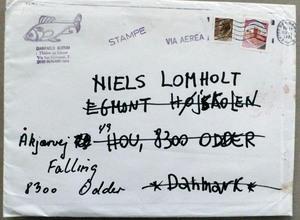 STAMPE
VIA AEREA
NIELS LOMHOLT
EGMONT HØJSKOLEN
Åkjærvej 49 HOU, 8300 ODDER
Falling
8300 Odder Danmark